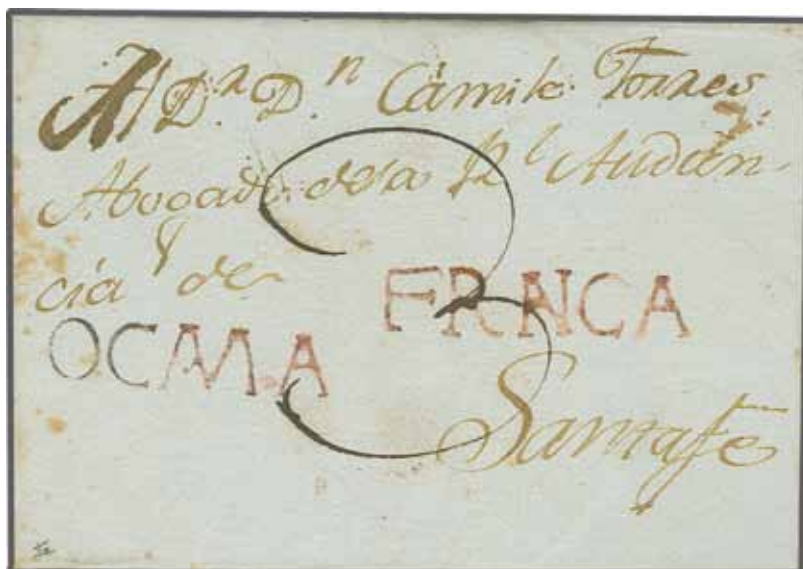 Al D.r D.n Cámilo Torres
Abogado de la Rl Audien-
cia de
FRNCA
OCMA
3
Santafe